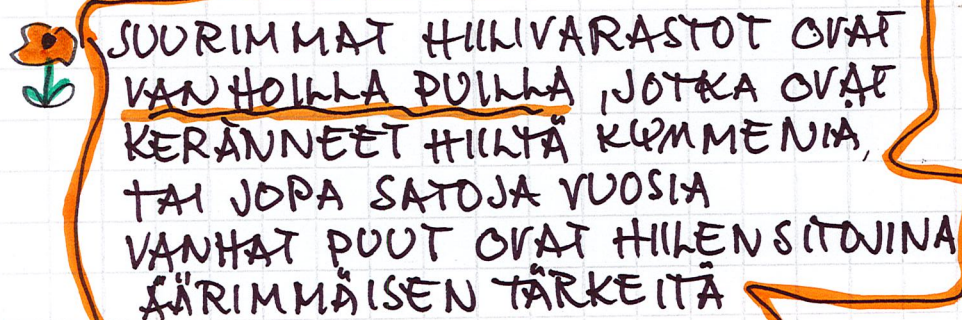 SUURIMMAT HIILIVARASTOT OVAT
VANHOILLA PUILLA, JOTKA OVAT
KERÄNNEET HIILTÄ KYMMENIÄ,
TAI JOPA SATOJA VUOSIA
VANHAT PUUT OVAT HIILENSITOJINA
ÄÄRIMMÄISEN TÄRKEITÄ